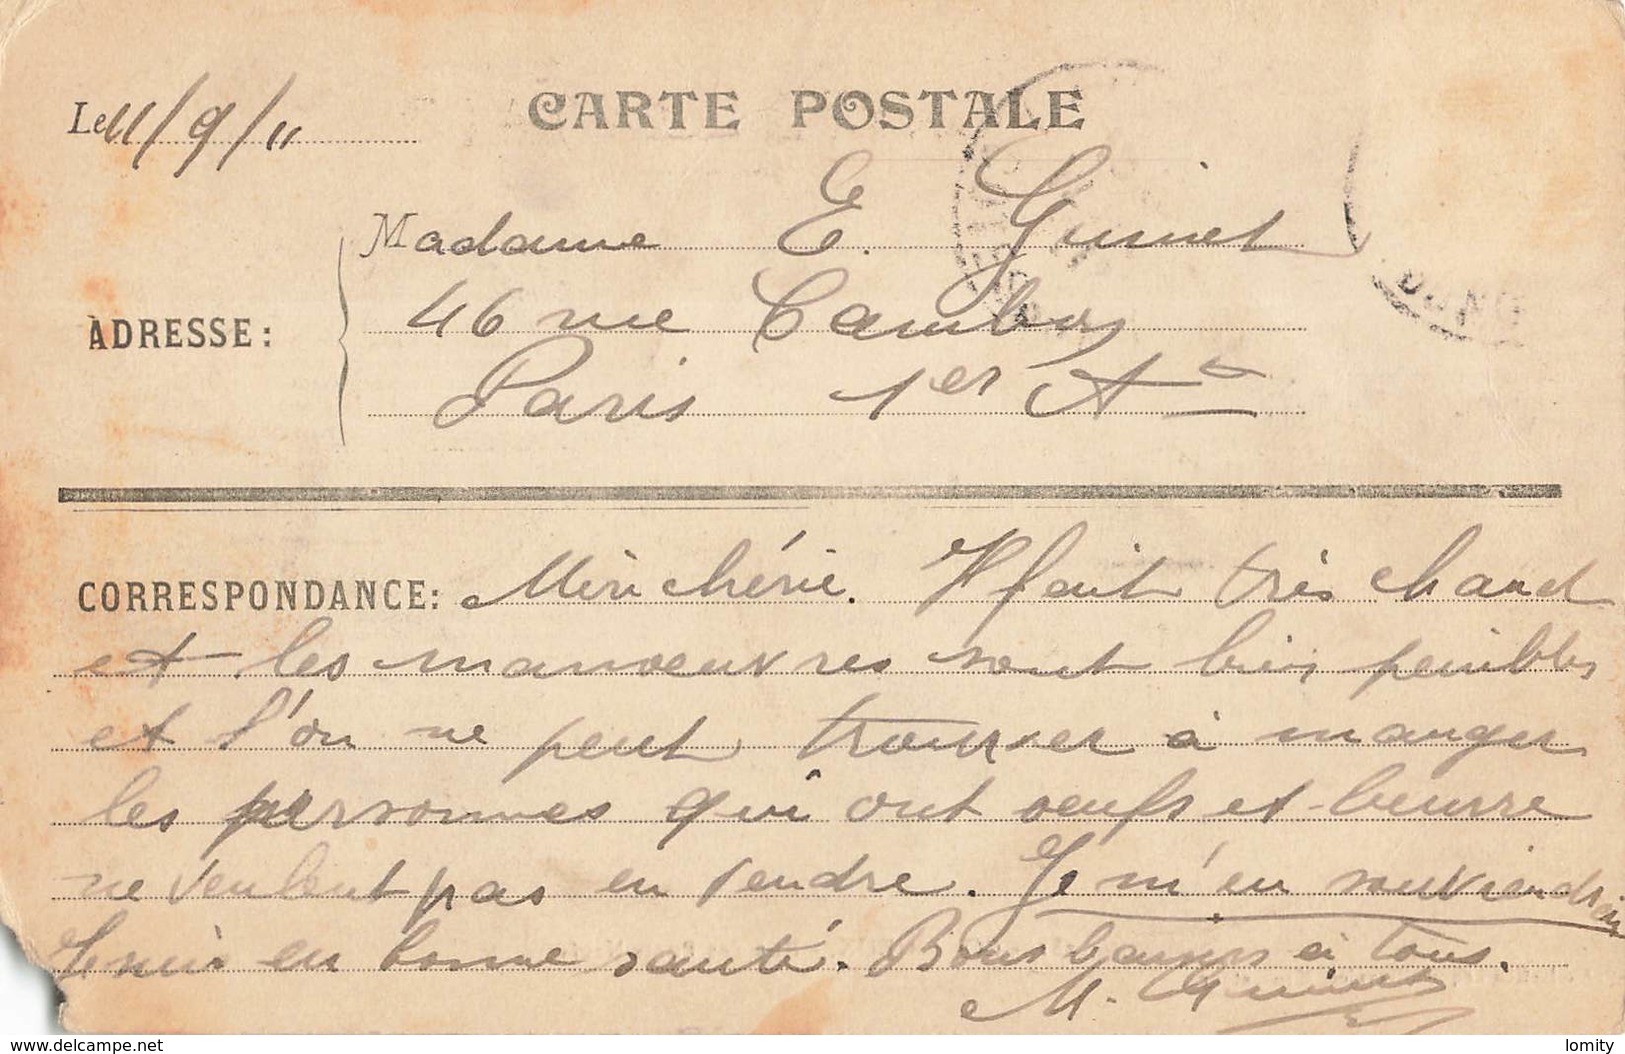 CARTE POSTALE
Le 11/9/11
Madame E. Guinet
ADRESSE: 46 rue Cambon
Paris 1er Art
CORRESPONDANCE: Mère chérie. Il fait très chaud
et les manoeuvres sont bien penibles
et l'on ne peut trouver à manger
les personnes qui ont oeufs et beurre
ne veulent pas en vendre. Je m'en souviendrai
suis en bonne santé. Bons baisers à tous.
M. Guinet
delcampe.net
lomity